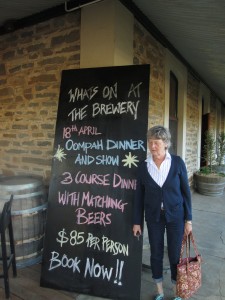 WHATS ON AT
THE BREWERY
18TH APRIL
OOMPAH DINNER
AND SHOW
3 COURSE DINN
WITH MATCHING
BEERS
$85 PER PERSON
BOOK NOW!!